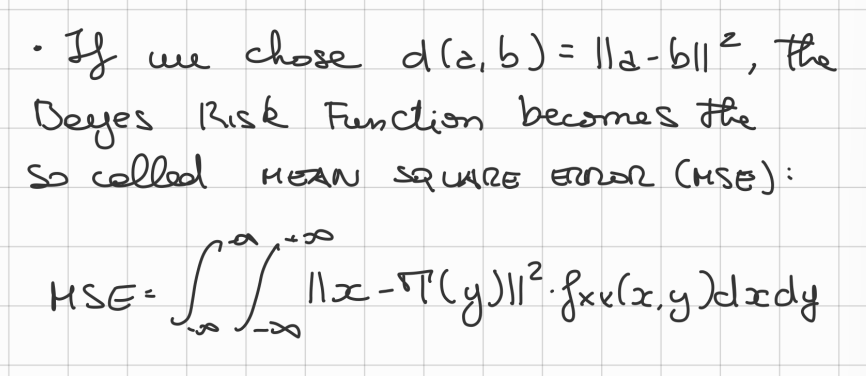 · If we chose d(a,b) = ||a-b||², the
Bayes Risk Function becomes the
so called MEAN SQUARE ERROR (MSE):
MSE = ∫_{-∞}^{+∞} ∫_{-∞}^{+∞} ||x - T(y)||² · f_{XY}(x,y) dx dy